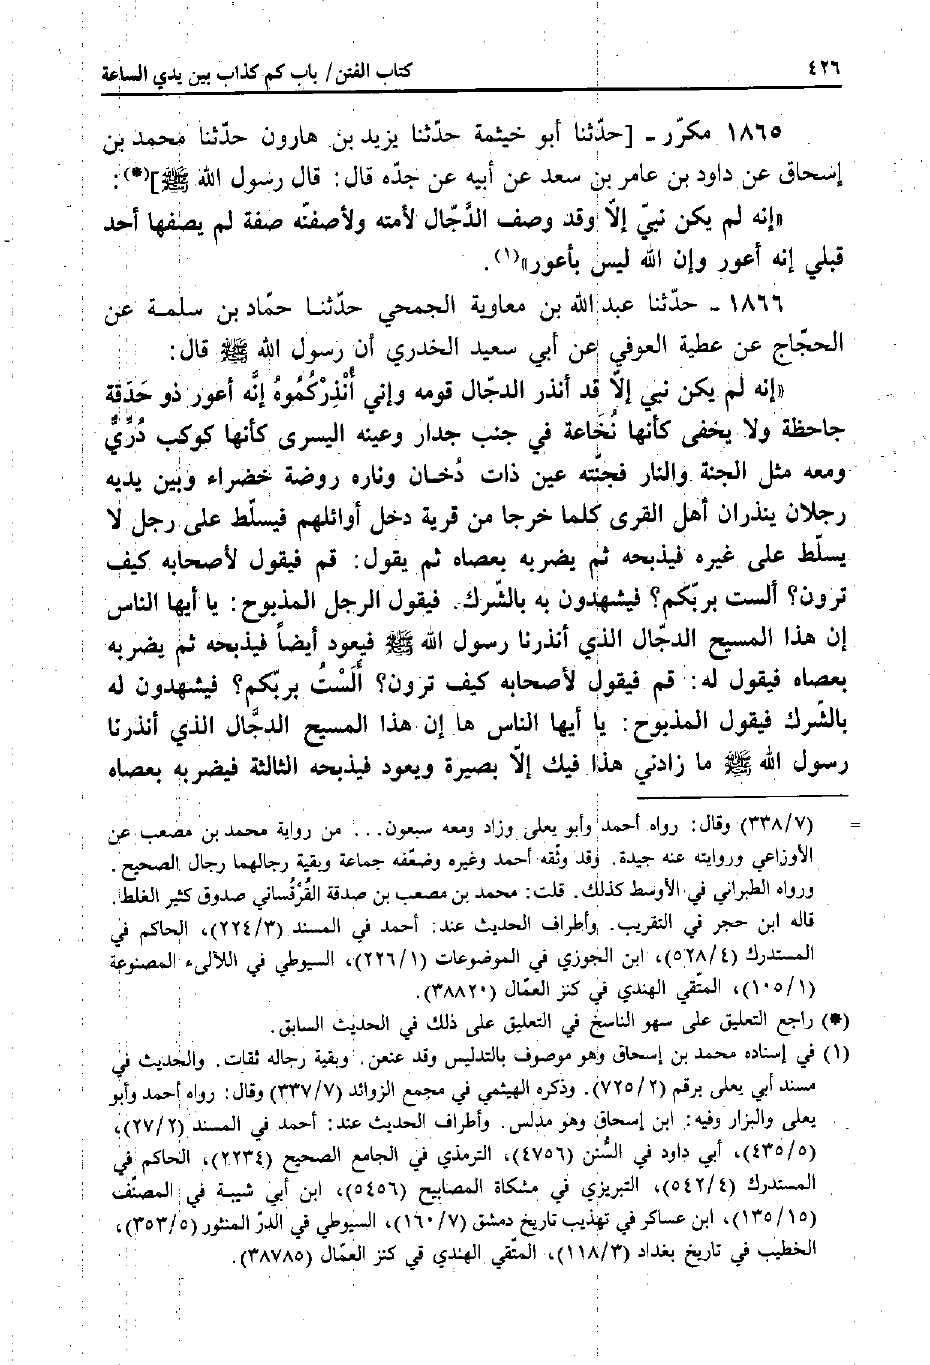 ٤٢٦
كتاب الفتن / باب كم كذاب بين يدي الساعة
١٨٦٥ مكرّر ـ [حدّثنا أبو خيثمة حدّثنا يزيد بن هارون حدّثنا محمد بن
إسحاق عن داود بن عامر بن سعد عن أبيه عن جدّه قال: قال رسول الله ﷺ](*):
«إنه لم يكن نبيّ إلاّ وقد وصف الدَّجّال لأمته ولأصفنّه صفة لم يصفها أحد
قبلي إنه أعور وإن الله ليس بأعور»(١).
١٨٦٦ ـ حدّثنا عبد الله بن معاوية الجمحي حدّثنا حمّاد بن سلمة عن
الحجّاج عن عطية العوفي عن أبي سعيد الخدري أن رسول الله ﷺ قال:
«إنه لم يكن نبي إلاّ قد أنذر الدجّال قومه وإني أُنْذِرْكُمُوهُ إنَّه أعور ذو حَدَقة
جاحظة ولا يخفى كأنها نُخَاعة في جنب جدار وعينه اليسرى كأنها كوكب دُرِّيٌّ
ومعه مثل الجنة والنار فجنّته عين ذات دُخان وناره روضة خضراء وبين يديه
رجلان ينذران أهل القرى كلما خرجا من قرية دخل أوائلهم فيسلّط على رجل لا
يسلّط على غيره فيذبحه ثم يضربه بعصاه ثم يقول: قم فيقول لأصحابه كيف
ترون؟ ألست بربّكم؟ فيشهدون به بالشّرك. فيقول الرجل المذبوح: يا أيها الناس
إن هذا المسيح الدجّال الذي أنذرنا رسول الله ﷺ فيعود أيضاً فيذبحه ثم يضربه
بعصاه فيقول له: قم فيقول لأصحابه كيف ترون؟ أَلَسْتُ بربّكم؟ فيشهدون له
بالشّرك فيقول المذبوح: يا أيها الناس ها إن هذا المسيح الدجَّال الذي أنذرنا
رسول الله ﷺ ما زادني هذا فيك إلاّ بصيرة ويعود فيذبحه الثالثة فيضربه بعصاه
= (٣٣٨/٧) وقال: رواه أحمد وأبو يعلى وزاد ومعه سبعون... من رواية محمد بن مصعب عن
الأوزاعي وروايته عنه جيدة. وقد وثّقه أحمد وغيره وضعّفه جماعة وبقية رجالهما رجال الصحيح.
ورواه الطبراني في الأوسط كذلك. قلت: محمد بن مصعب بن صدقة القُرْقُساني صدوق كثير الغلط.
قاله ابن حجر في التقريب. وأطراف الحديث عند: أحمد في المسند (٢٢٤/٣)، الحاكم في
المستدرك (٥٢٨/٤)، ابن الجوزي في الموضوعات (٢٢٦/١)، السيوطي في اللآلىء المصنوعة
(١٠٥/١)، المتّقي الهندي في كنز العمّال (٣٨٨٢٠).
(*) راجع التعليق على سهو الناسخ في التعليق على ذلك في الحديث السابق.
(١) في إسناده محمد بن إسحاق وهو موصوف بالتدليس وقد عنعن. وبقية رجاله ثقات. والحديث في
مسند أبي يعلى برقم (٧٢٥/٢). وذكره الهيثمي في مجمع الزوائد (٣٣٧/٧) وقال: رواه أحمد وأبو
يعلى والبزار وفيه: ابن إسحاق وهو مدلس. وأطراف الحديث عند: أحمد في المسند (٢٧/٢)،
(٤٣٥/٥)، أبي داود في السُّنن (٤٧٥٦)، الترمذي في الجامع الصحيح (٢٢٣٤)، الحاكم في
المستدرك (٥٤٢/٤)، التبريزي في مشكاة المصابيح (٥٤٥٦)، ابن أبي شيبة في المصنّف
(١٣٥/١٥)، ابن عساكر في تهذيب تاريخ دمشق (١٦٠/٧)، السيوطي في الدرّ المنثور (٣٥٣/٥)،
الخطيب في تاريخ بغداد (١١٨/٣)، المتّقي الهندي في كنز العمّال (٣٨٧٨٥).